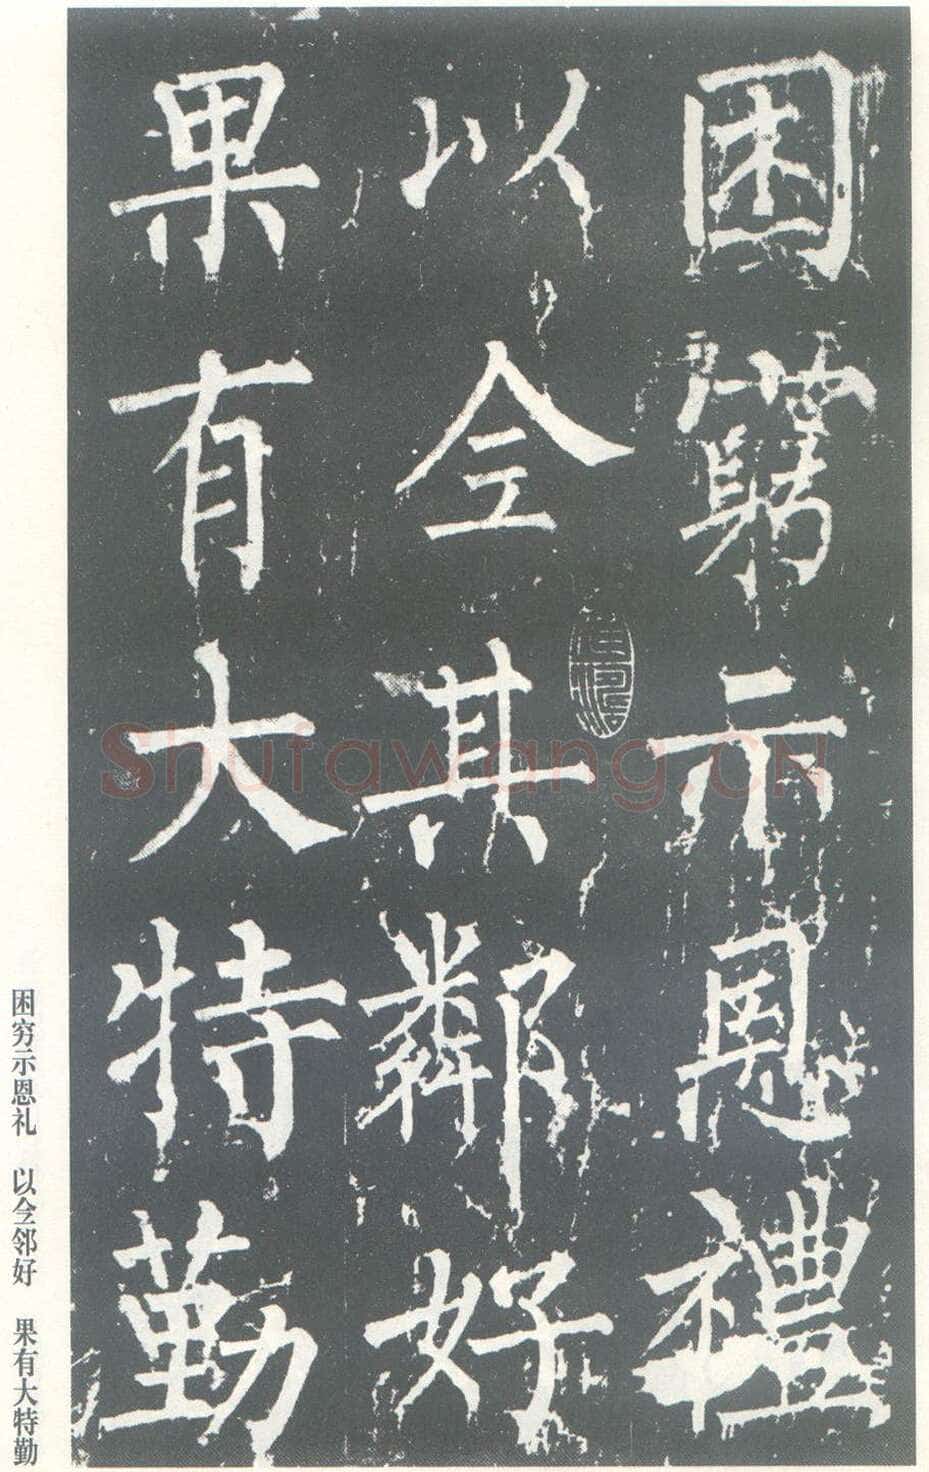 困窮示恩禮
以仝其鄰好
果有大特勤
困穷示恩礼 以仝邻好 果有大特勤
Shufawang.CN